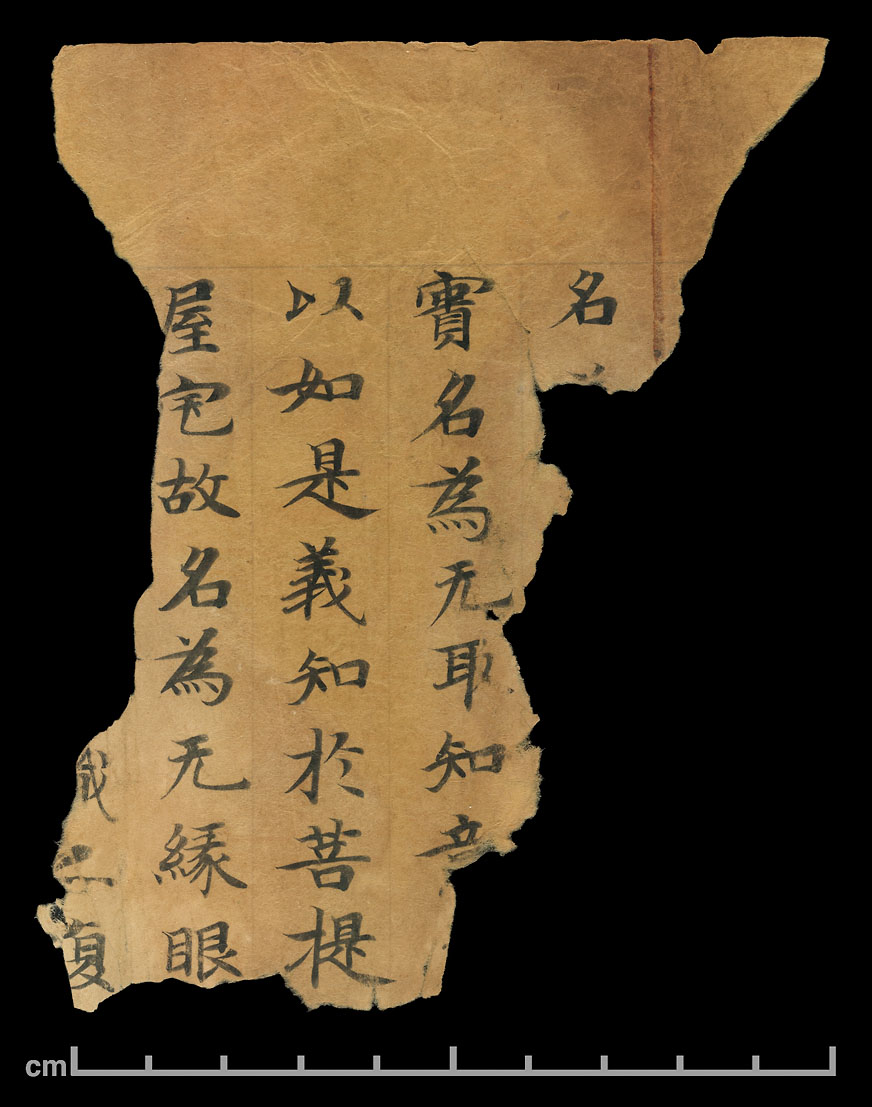 名
實名為无取知意
以如是義知於菩提
屋宅故名為无緣眼
復